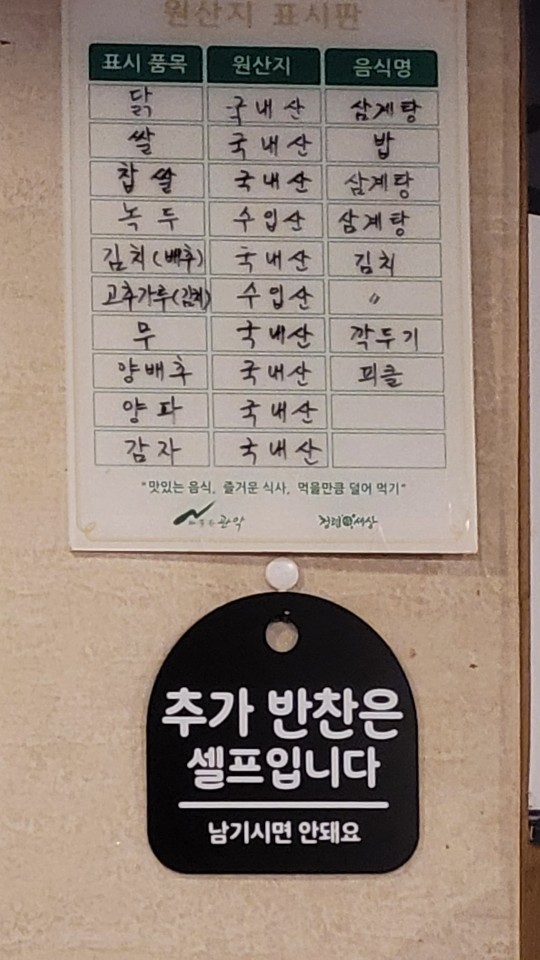 원산지 표시판
표시 품목 원산지 음식명
닭 국내산 삼계탕
쌀 국내산 밥
찹쌀 국내산 삼계탕
녹두 수입산 삼계탕
김치(배추) 국내산 김치
고추가루(김치) 수입산 〃
무 국내산 깍두기
양배추 국내산 피클
양파 국내산
감자 국내산
"맛있는 음식, 즐거운 식사, 먹을만큼 덜어 먹기"
관악
추가 반찬은
셀프입니다
남기시면 안돼요